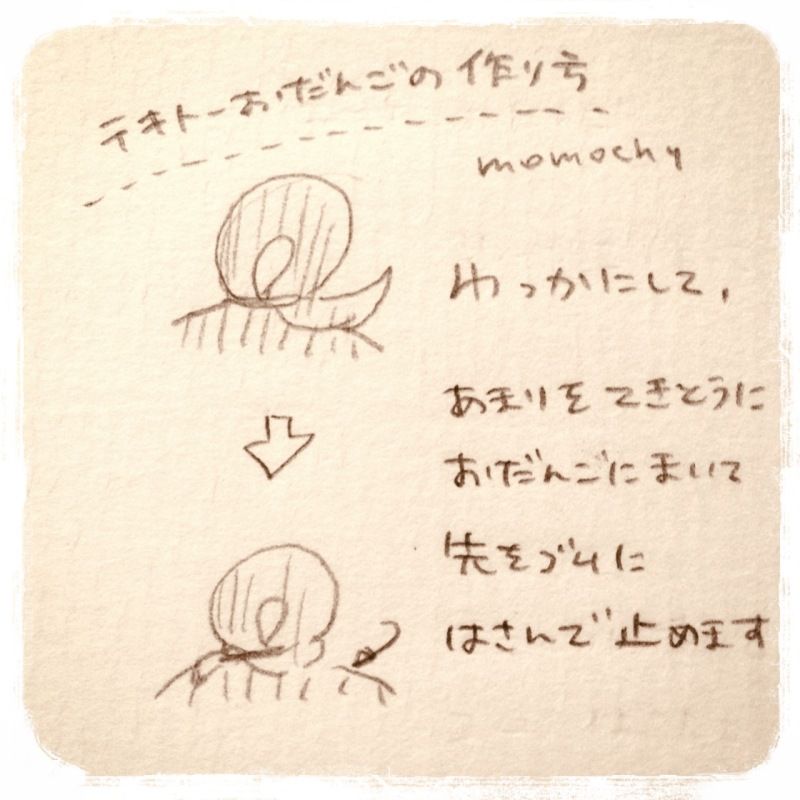 テキトーおだんごの作り方
momochy
わっかにして,
あまりをてきとうに
おだんごにまいて
先をゴムに
はさんで止めます